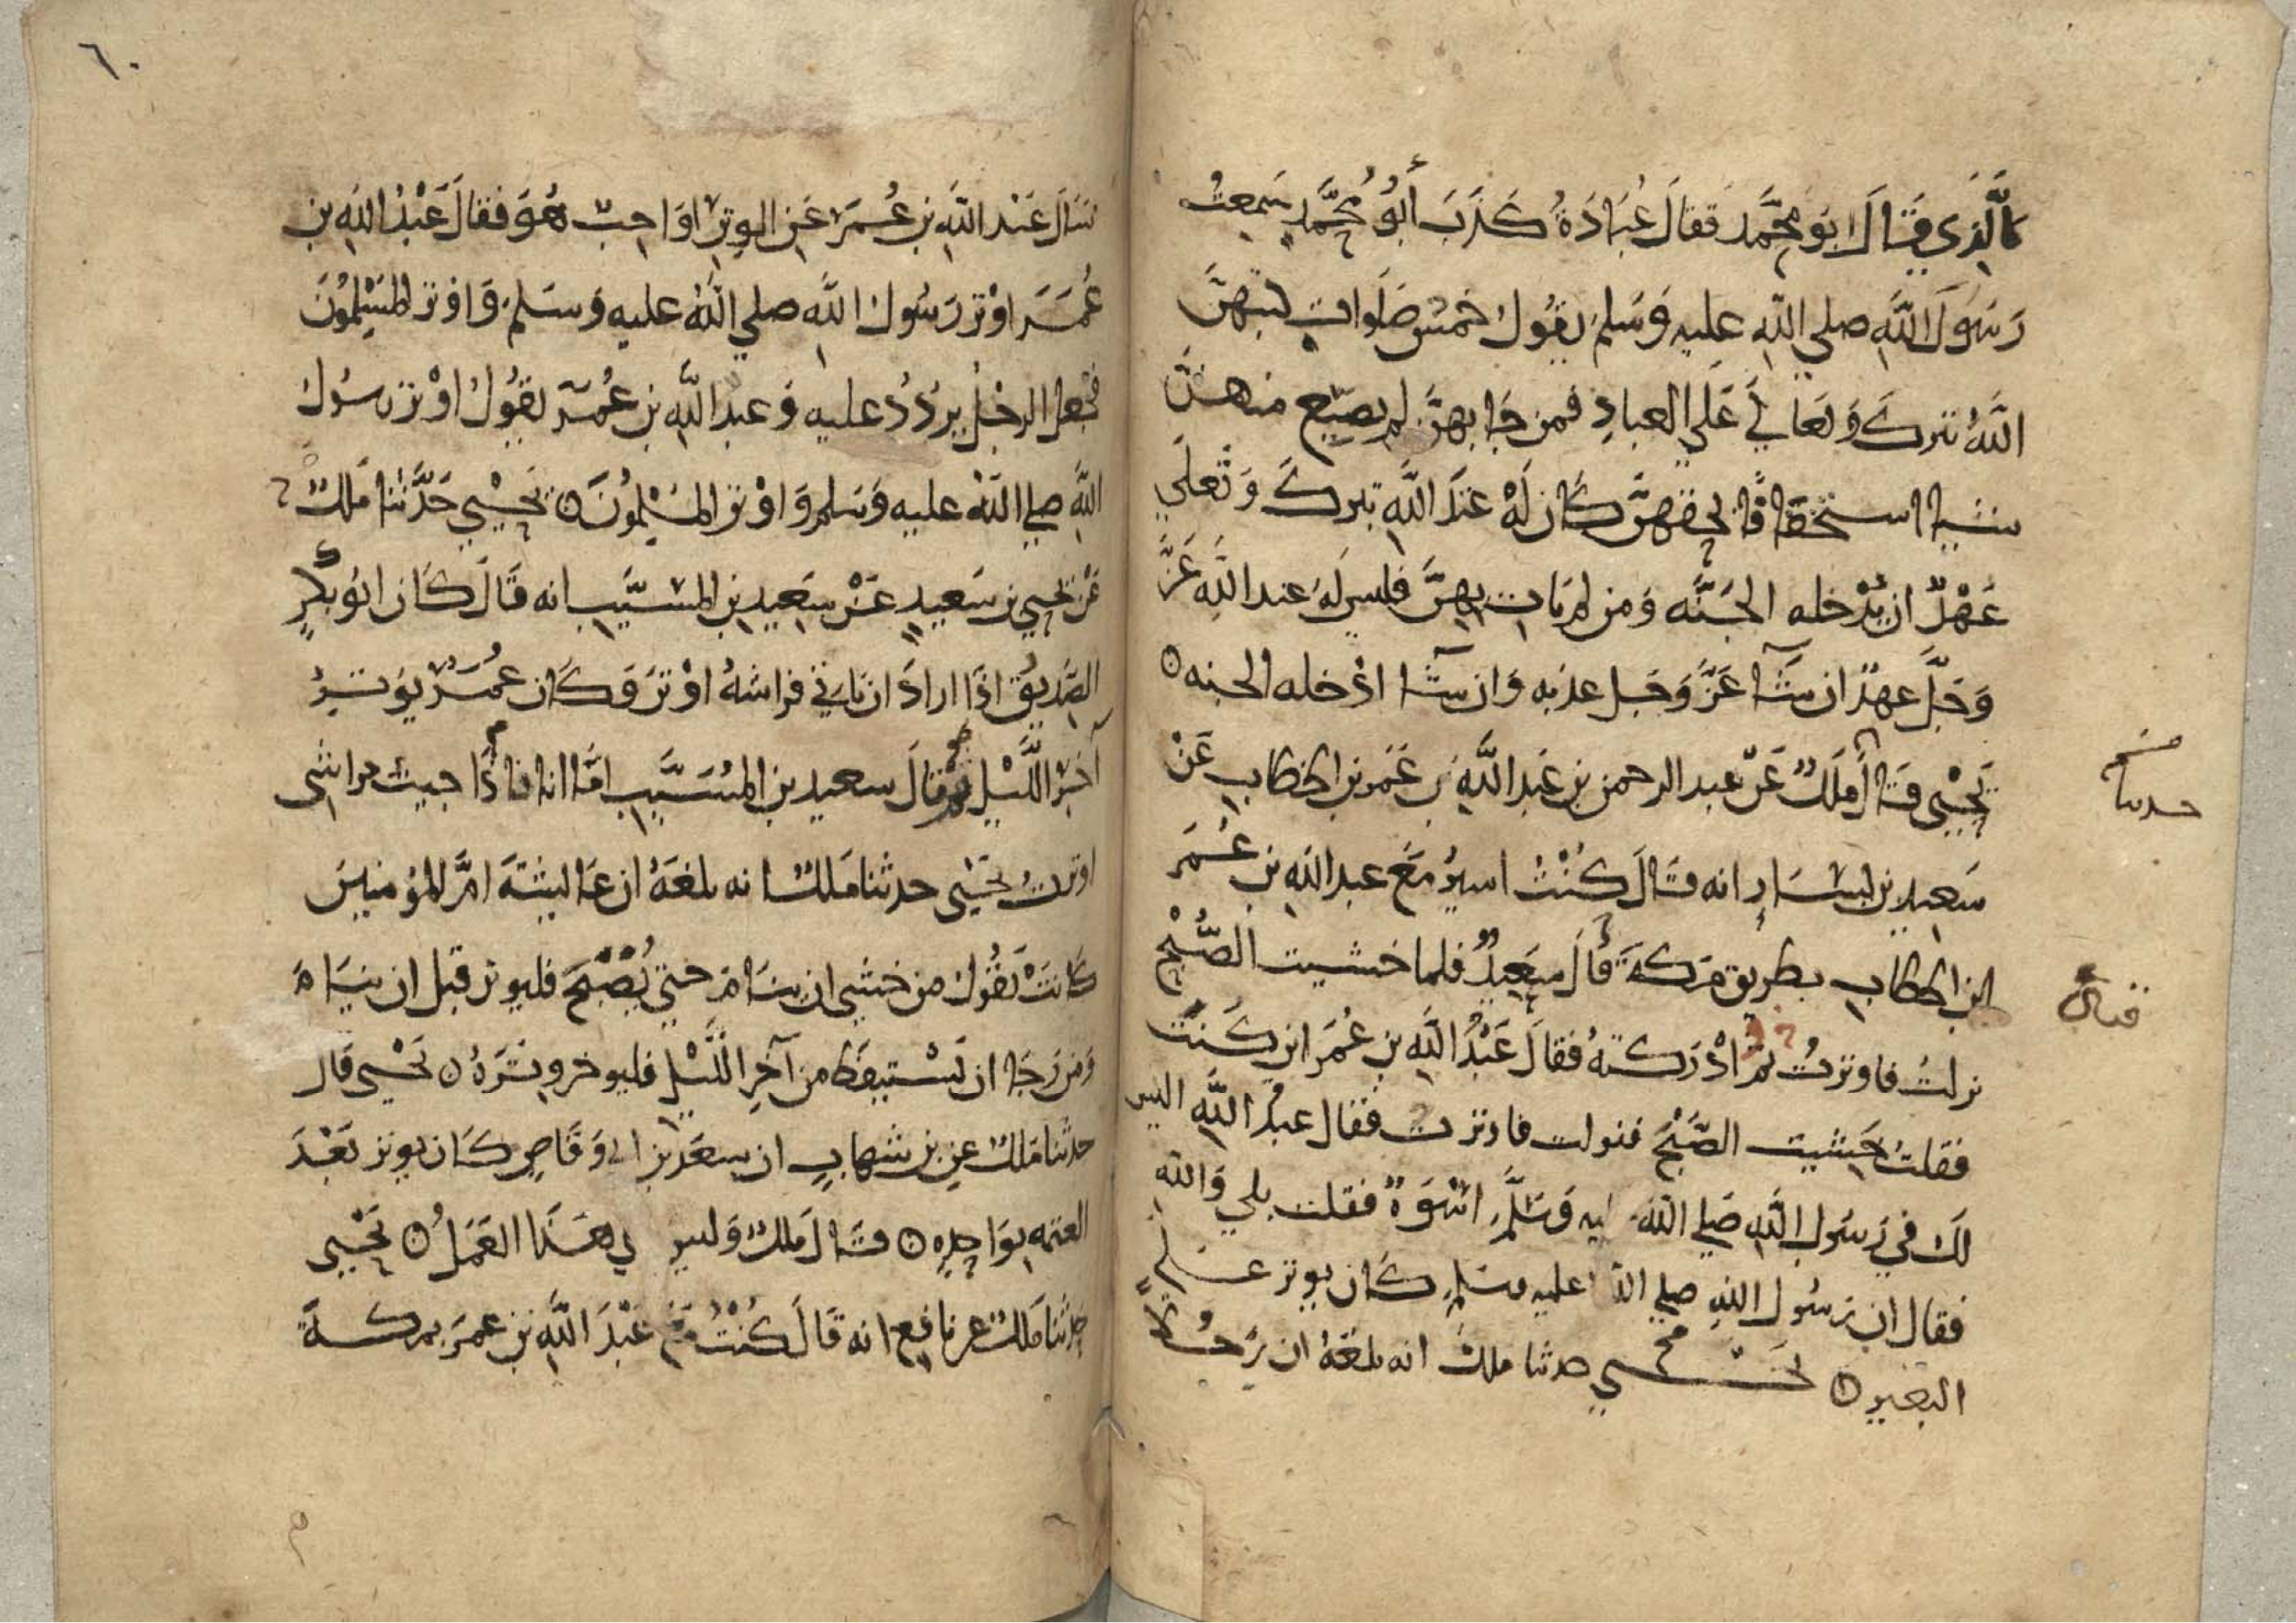 كالذي قال ابو محمد فقال عبادة كذب أبو محمد سمعت
رسول الله صلي الله عليه وسلم يقول خمس صلوات كتبهن
الله تبرك وتعالي علي العباد فمن جا بهن لم يضيع منهن
شيا استخفافا بحقهن كان له عند الله تبرك وتعلي
عهد ان يدخله الجنه ومن لم يات بهن فليس له عند الله عز
وجل عهد ان شآ عز وجل عذبه وان شآ ادخله الجنه ۞
يحيي قال ملك عن عبد الرحمن بن عبد الله بن عمر بن الخطاب عن
حدثنا
سعيد بن يسار انه قال كنت اسير مع عبد الله بن عمر
ابن الخطاب بطريق مكة قال سعيد فلما خشيت الصبح
فقال
نزلت فاوترت ثم ادركته فقال عبد الله بن عمر اين كنت
فقلت خشيت الصبح فنزلت فاوترت فقال عبد الله اليس
لك في رسول الله صلي الله عليه وسلم اسوة فقلت بلي والله
فقال ان رسول الله صلي الله عليه وسلم كان يوتر علي
البعير ۞ يحيي حدثنا ملك انه بلغه ان رجلا
٦٠
سال عبد الله بن عمر عن الوتر اواجب هو فقال عبد الله بن
عمر اوتر رسول الله صلي الله عليه وسلم واوتر المسلمون
فجعل الرجل يردد عليه وعبد الله بن عمر يقول اوتر رسول
الله صلي الله عليه وسلم واوتر المسلمون ۞ يحيي حدثنا ملك
عن يحيي بن سعيد عن سعيد بن المسيب انه قال كان ابو بكر
الصديق اذا اراد ان ياتي فراشه اوتر وكان عمر يوتر
آخر الليل قال سعيد بن المسيب اما انا فاذا جيت فراشي
اوترت يحيي حدثنا ملك انه بلغه ان عايشة ام المؤمنين
كانت تقول من خشي ان ينام حتي يصبح فليوتر قبل ان ينام
ومن رجا ان يستيقظ من آخر الليل فليوخر وتره ۞ يحيي قال
حدثنا ملك عن بن شهاب ان سعد بن ابي وقاص كان يوتر بعد
العتمه بواحده ۞ قال ملك وليس في هذا العمل ۞ يحيي
حدثنا ملك عن نافع انه قال كنت مع عبد الله بن عمر بمكة